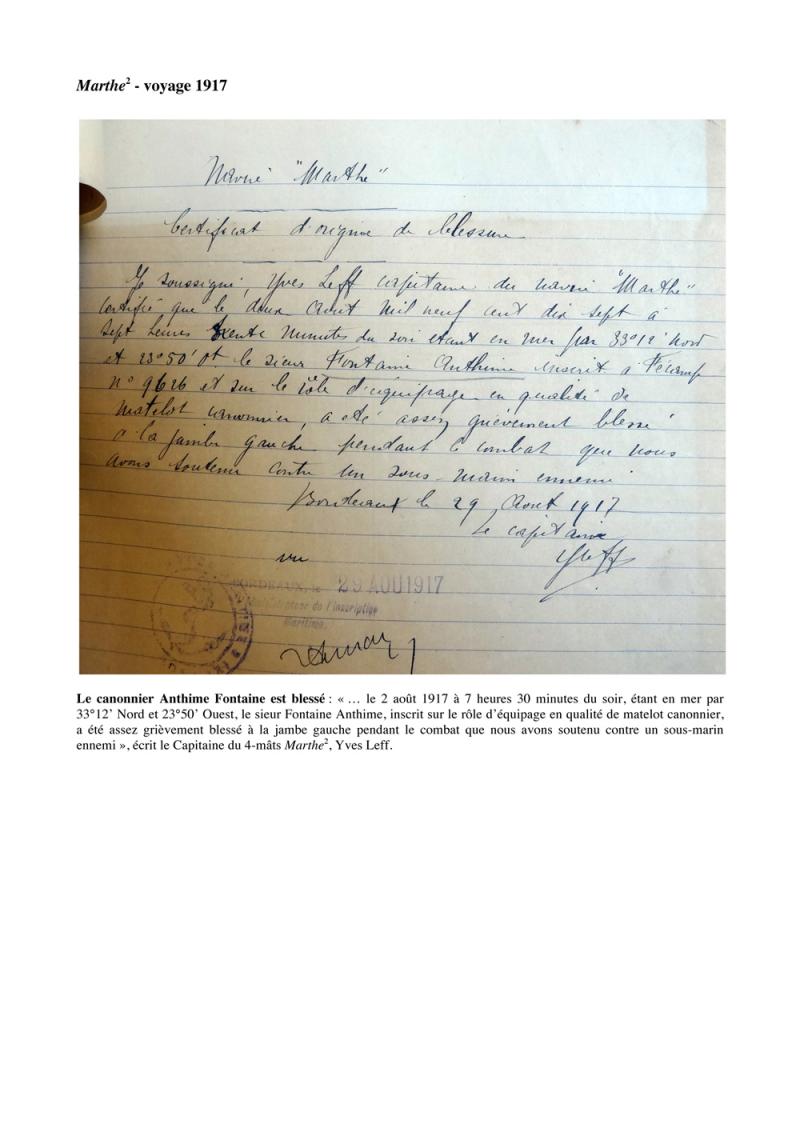 Marthe² - voyage 1917
Navire "Marthe"
Certificat d'origine de blessure
Je soussigné, Yves Leff capitaine du navire "Marthe"
certifie que le deux Aout mil neuf cent dix sept à
sept heures trente minutes du soir etant en mer par 33°12' Nord
et 23°50' Ot le sieur Fontaine Anthime inscrit à Fécamp
n° 9626 et sur le rôle d'équipage en qualité de
matelot canonnier, a été assez grièvement blessé
à la jambe gauche pendant le combat que nous
avons soutenu contre un sous-marin ennemi
Bordeaux le 29 Aout 1917
Le capitaine
YLeff
vu
BORDEAUX, le 29 AOU 1917
Administrateur de l'Inscription
Maritime.
Le canonnier Anthime Fontaine est blessé : « … le 2 août 1917 à 7 heures 30 minutes du soir, étant en mer par
33°12' Nord et 23°50' Ouest, le sieur Fontaine Anthime, inscrit sur le rôle d'équipage en qualité de matelot canonnier,
a été assez grièvement blessé à la jambe gauche pendant le combat que nous avons soutenu contre un sous-marin
ennemi », écrit le Capitaine du 4-mâts Marthe², Yves Leff.